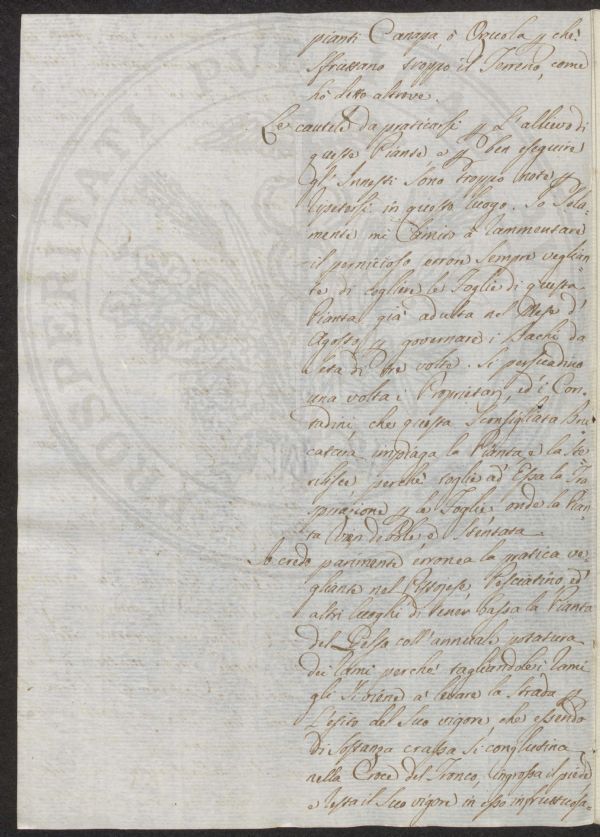 pianti Canapa, ò Orzuola p. chè
sfruttano troppo il Terreno, come
hò detto altrove.
Le cautele da praticarsi p. l'allievo di
queste Piante e p. ben eseguire
gl'Innesti sono troppo note p.
ripetersi in questo luogo. Io sola-
mente mi limito à rammentare
il pernicioso errore sempre veglian-
te di cogliere le Foglie di questa
Pianta già adulta nel Mese d'
Agosto p. governare i Bachi da
seta di tre volte. Si persuadino
una volta i Proprietarj, ed' i Con-
tadini, che questa sconsigliata Bru-
catura impiaga la Pianta e la ste-
rilisce perchè toglie ad' Essa la Tra-
spirazione p. le Foglie onde la Pian-
ta vien debole e stentata.
Io credo parimente erronea la pratica ve-
gliante nel Pesciatino, ed'
altri luoghi di tener bassa la Pianta
del Gelso coll'annuale potatura
dei rami perchè tagliandoli i rami
gli si viene à levare la strada p.
l'esito del suo vigore, che essendo
di sostanza crassa si conglutina
nella Croce del Tronco, ingrossa il piede
e resta il suo vigore in esso infruttuosa-
PROSPERITATI PUBLICAE